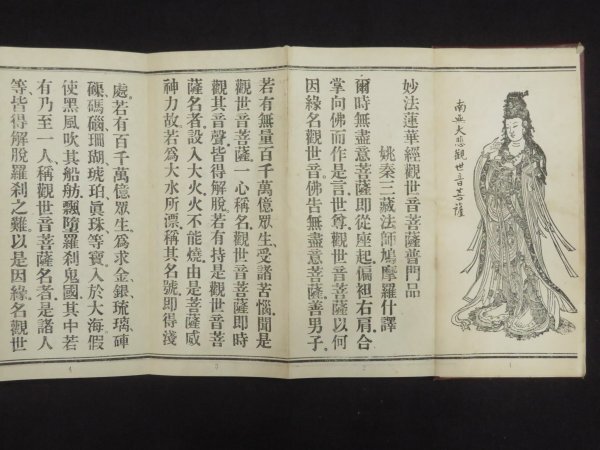 南無大悲觀世音菩薩
妙法蓮華經觀世音菩薩普門品
姚秦三藏法師鳩摩羅什譯
爾時無盡意菩薩即從座起偏袒右肩合
掌向佛而作是言世尊觀世音菩薩以何
因緣名觀世音佛告無盡意菩薩善男子
若有無量百千萬億眾生受諸苦惱聞是
觀世音菩薩一心稱名觀世音菩薩即時
觀其音聲皆得解脫若有持是觀世音菩
薩名者設入大火火不能燒由是菩薩威
神力故若為大水所漂稱其名號即得淺
處若有百千萬億眾生為求金銀琉璃硨
磲碼碯珊瑚琥珀眞珠等寶入於大海假
使黑風吹其船舫飄墮羅刹鬼國其中若
有乃至一人稱觀世音菩薩名者是諸人
等皆得解脫羅刹之難以是因緣名觀世